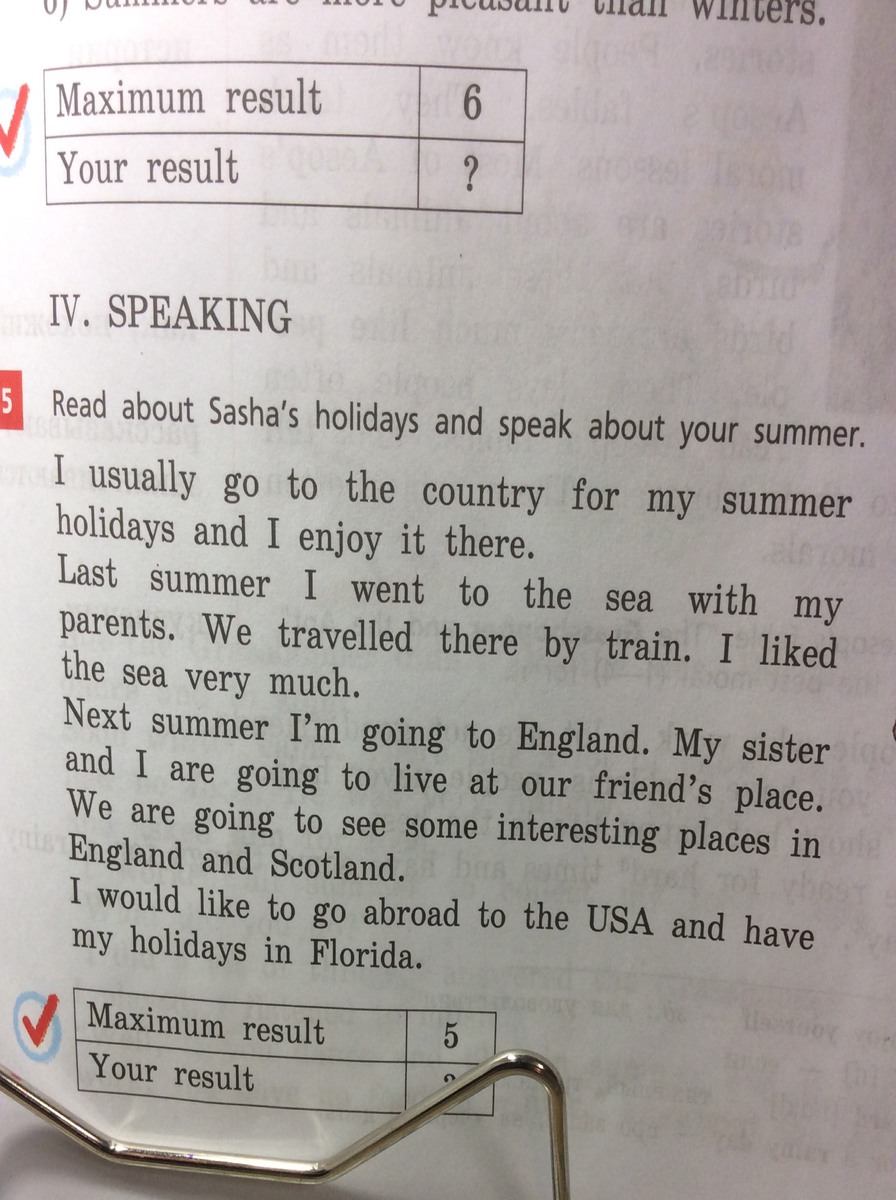 6) Summers are more pleasant than winters.
Maximum result 6
Your result ?
IV. SPEAKING
5 Read about Sasha's holidays and speak about your summer.
I usually go to the country for my summer
holidays and I enjoy it there.
Last summer I went to the sea with my
parents. We travelled there by train. I liked
the sea very much.
Next summer I'm going to England. My sister
and I are going to live at our friend's place.
We are going to see some interesting places in
England and Scotland.
I would like to go abroad to the USA and have
my holidays in Florida.
Maximum result 5
Your result ?